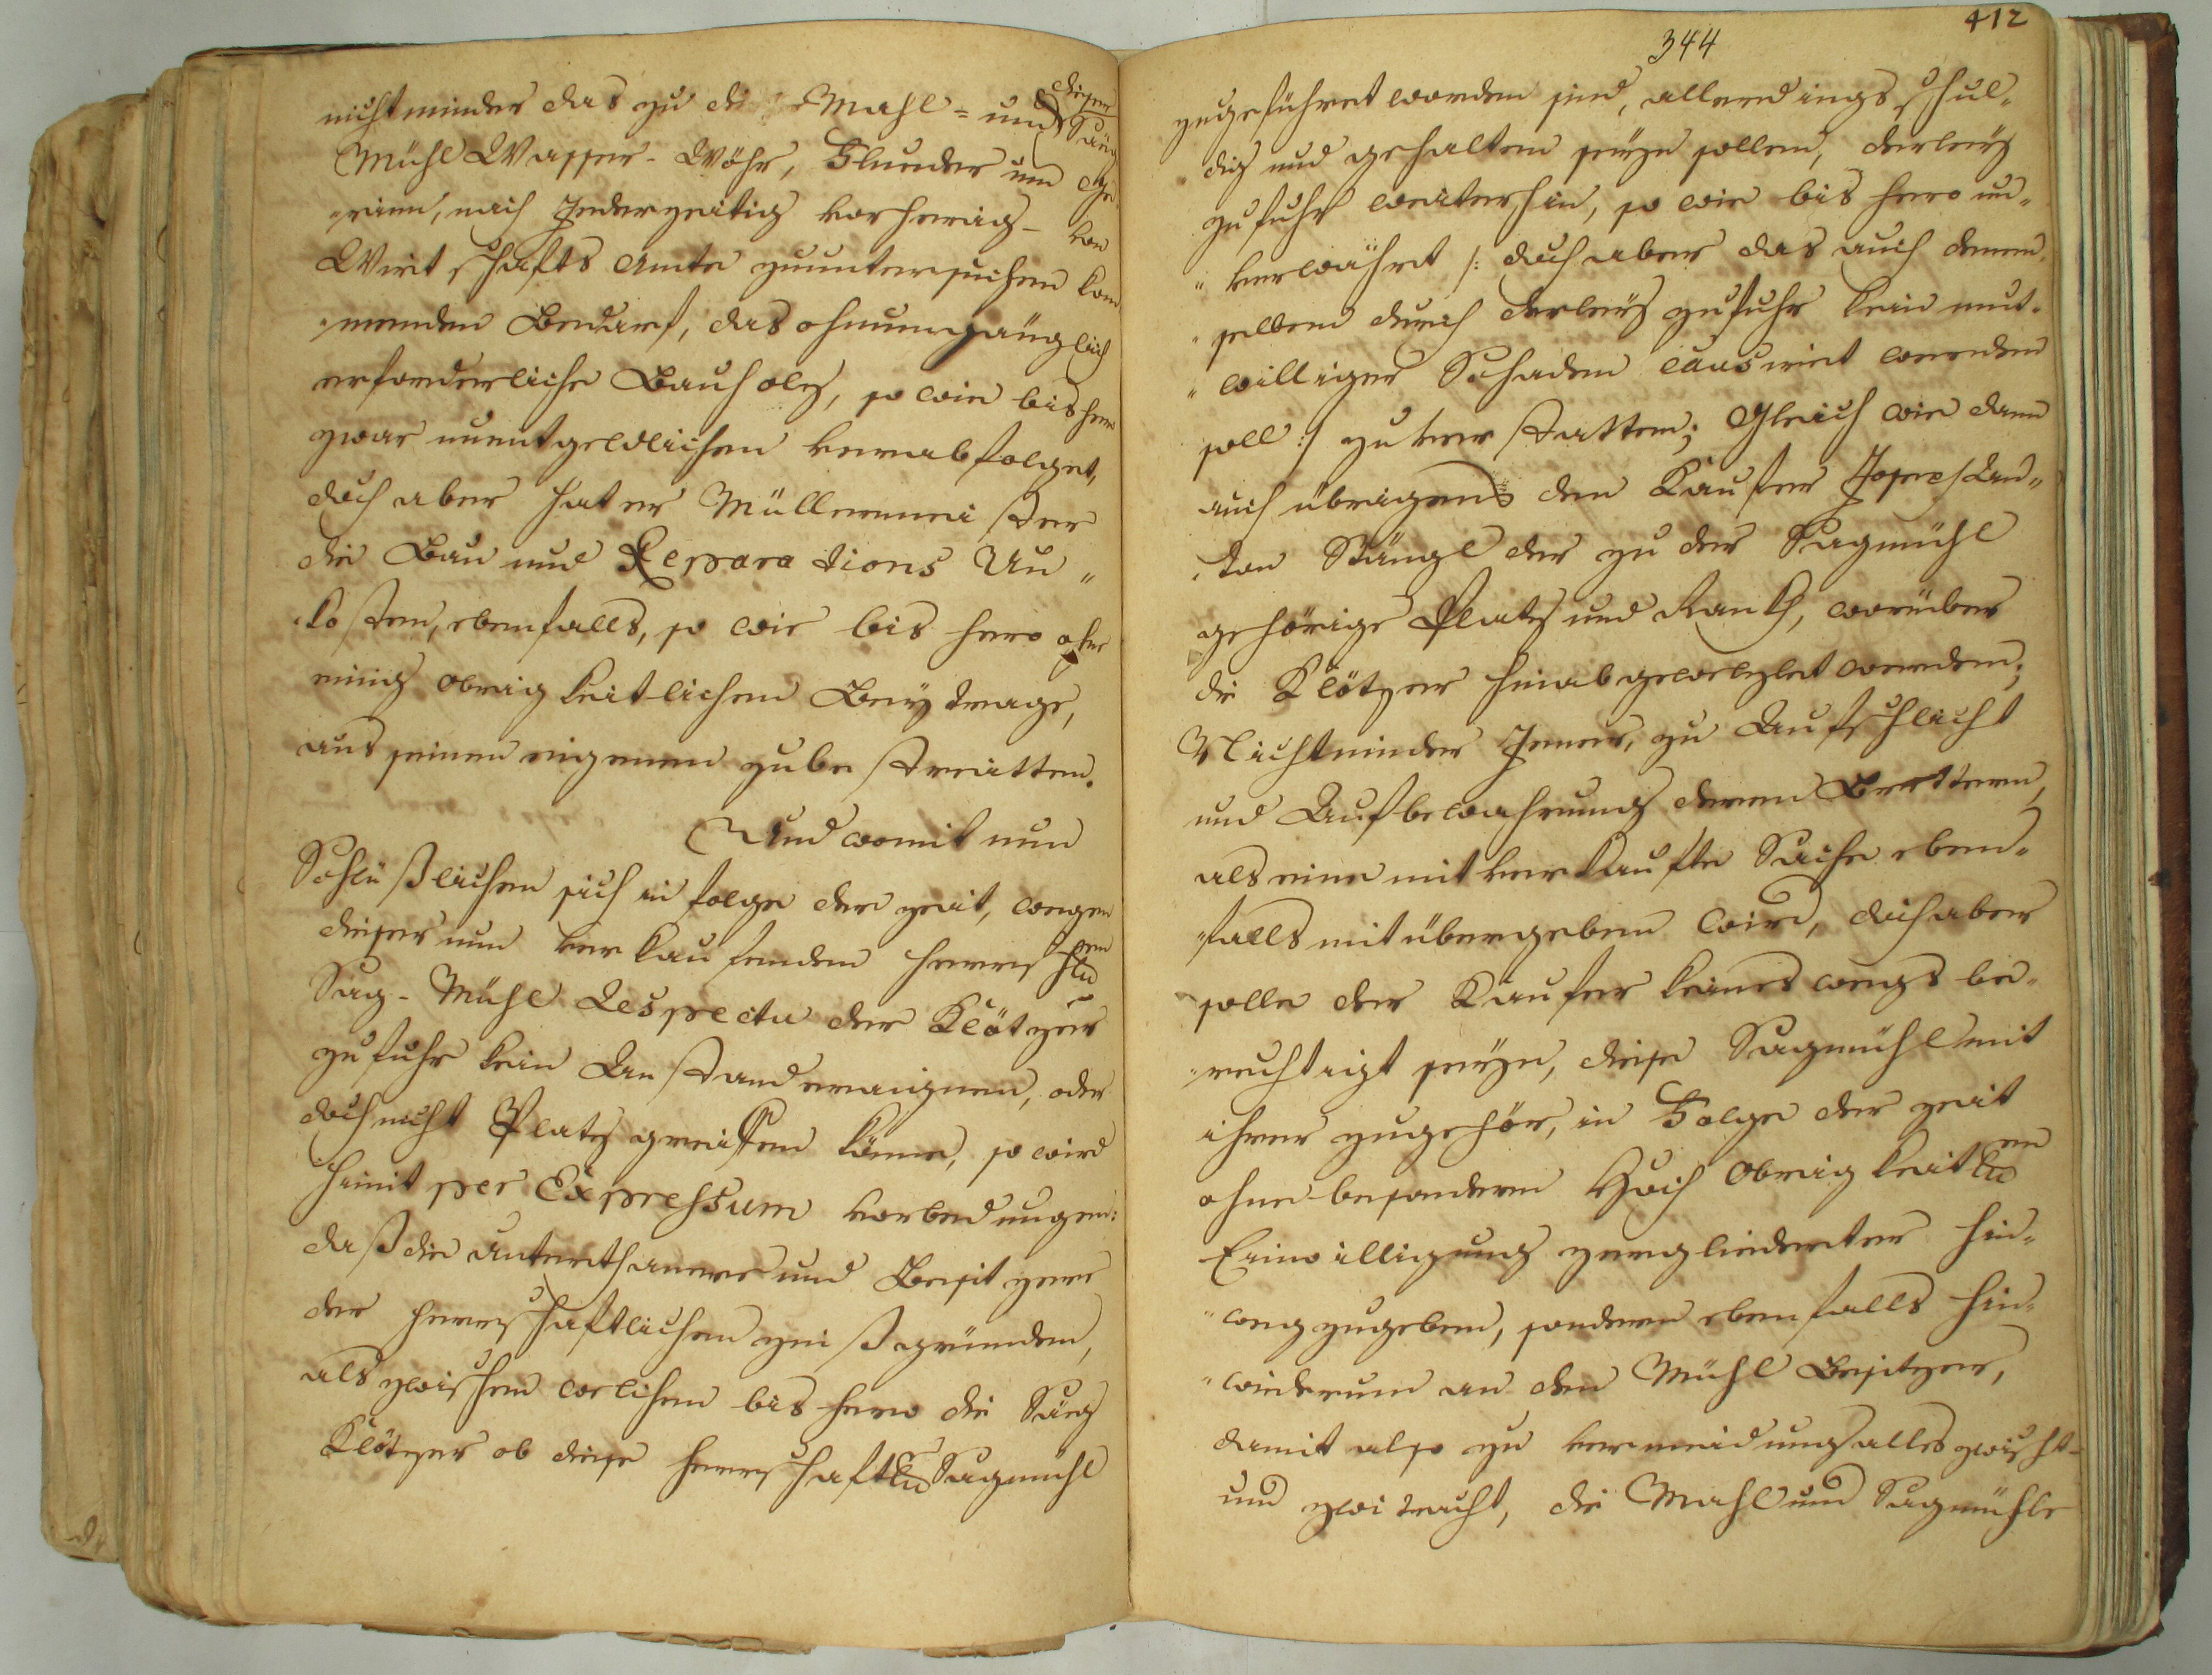 nicht minder das zu die Mahl- und dieser Säeg
Mühl Wasser-Wöhr, Fluder und Ge-
„rinn, nach Jederzeitig vorherig- von
Wirtschafts Amte zuuntersuchen kom-
„menden Bedarf, das ohnumgänglich
erforderliche Bauholz, so wie bishero
zwar unentgeldlichen verabfolget,
doch aber hat er Müllermeister
die Bau und Reparations Un„
„kosten, ebenfalls, so wie bis hero ohne
einig obrigkeitlichen Beytrage,
aus seinen eigenen zubestreitten.
Und womit nun
Schlüßlichen sich in folge der zeit, wegen
dieser nun verkaufenden herrschl.en
Sag-Mühl Respectu der Klötzer
zufuhr kein Anstand eraignen, oder
doch nicht Platz greiffen könne, so wird
hiemit per Expressum vorbedungen:
daß die Unterthanere und Besitzere
der herrschaftlichen zeißgründen,
als zwischen welchen bis hero die Säeg
Klötzer ob diese herrschaftl. Sagmühl
344
412
zugeführet worden sind, allerdings schul„
„dig und gehalten seyn sollen, derleÿ
zufuhr weitershin, so wie bis hero un„
„verwähret /: doch aber das auch denen„
„selben durch derleÿ zufuhr kein mut„
„williger Schaden causiret werden
soll :/ zu verstatten; Gleich wie dann
auch übrigens den Kaufer Joseph An„
„ton Stängl der zu der Sagmühl
gehörige Platz und Ranth, worüber
die Klötzer hinabgewelzlet werden;
Nicht minder Jener, zu Aufschlicht
und Aufbewahrung deren Brettern,
als eine mit verkaufte Sache eben„
„falls mit übergeben wird, doch aber
solle der Kaufer keines weegs be„
„rechtigt seyn, diese Sagmühl mit
ihrer zugehör, in Folge der zeit
ohne besondern Hoch Obrigkeitl.en
Einwilligung zergliederter hin„
„weg zugeben, sondern ebenfalls hin„
„wiederum an den Mühl Besitzer,
damit also zu vermeidung alles zwischt-
und zwitracht, die Mahl und Sagmühle